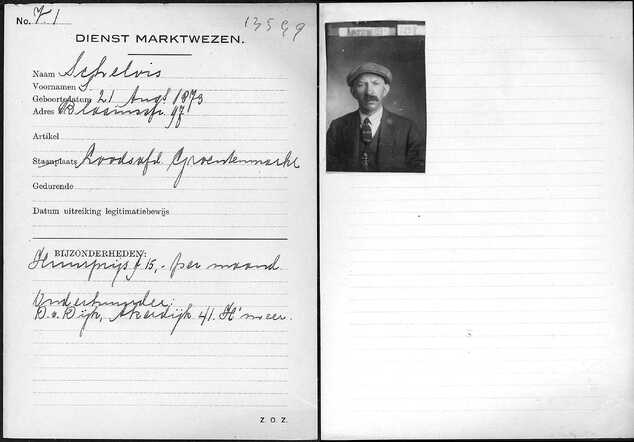 No. 71
13599
DIENST MARKTWEZEN.
Naam Schelvis
Voornamen S
Geboortedatum 21 Augs 1873
Adres Bloemstr 97
Artikel
Staanplaats Loodsafd. Groentenmarkt
Gedurende
Datum uitreiking legitimatiebewijs
BIJZONDERHEDEN:
Huurprijs f 15,- per maand.
Onderhuurder:
D. v. Dijk, Akerdijk 41. H'meer.
Z. O. Z.